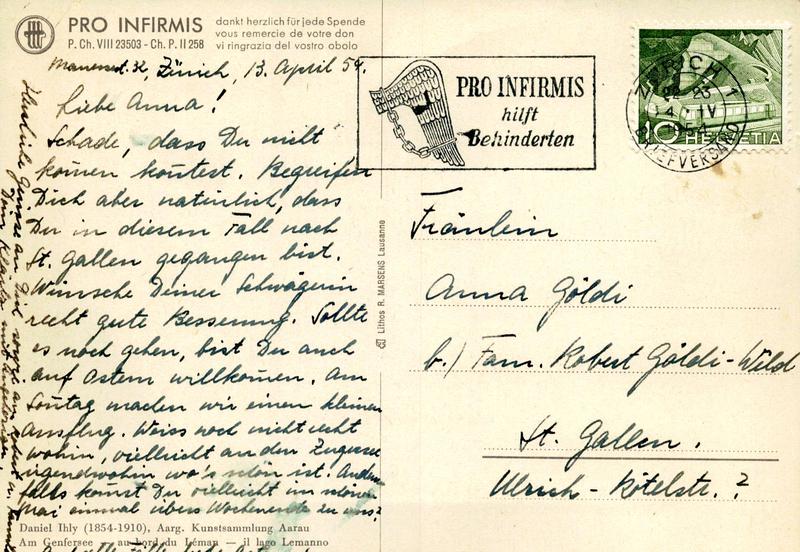 PRO INFIRMIS
P. Ch. VIII 23503 - Ch. P. II 258
dankt herzlich für jede Spende
vous remercie de votre don
vi ringrazia del vostro obolo
32, Zürich, 13. April 54.
Liebe Anna!
Schade, dass Du nicht
kom̄en kon̄test. Begreifen
Dich aber natürlich, dass
Du in diesem Fall nach
St. Gallen gegangen bist.
Wünsche Deiner Schwägerin
recht gute Besserung. Sollte
es noch gehen, bist Du auch
auf Ostern willkom̄en. Am
Son̄tag machen wir einen kleinen
Ausflug. Weiss noch nicht recht
wohin, vielleicht an den Zugersee
irgendwohin wo's schön ist. Andern
falls kom̄st Du vielleicht im schönen
Mai einmal übers Wochenende zu uns?
Herzliche Grüsse an Dich sowie an Robert u.
Deine Klärli mit
Daniel Ihly (1854-1910), Aarg. Kunstsammlung Aarau
Am Genfersee — au bord du Léman — il lago Lemanno
Lithos R. MARSENS Lausanne
PRO INFIRMIS
hilft
Behinderten
ZÜRICH 1
22-23
IV
54
BRIEFVERSAND
10 HELVETIA
Fräulein
Anna Göldi
b./ Fam. Robert Göldi-Wild
St. Gallen.
Ulrich-Rötelstr.?